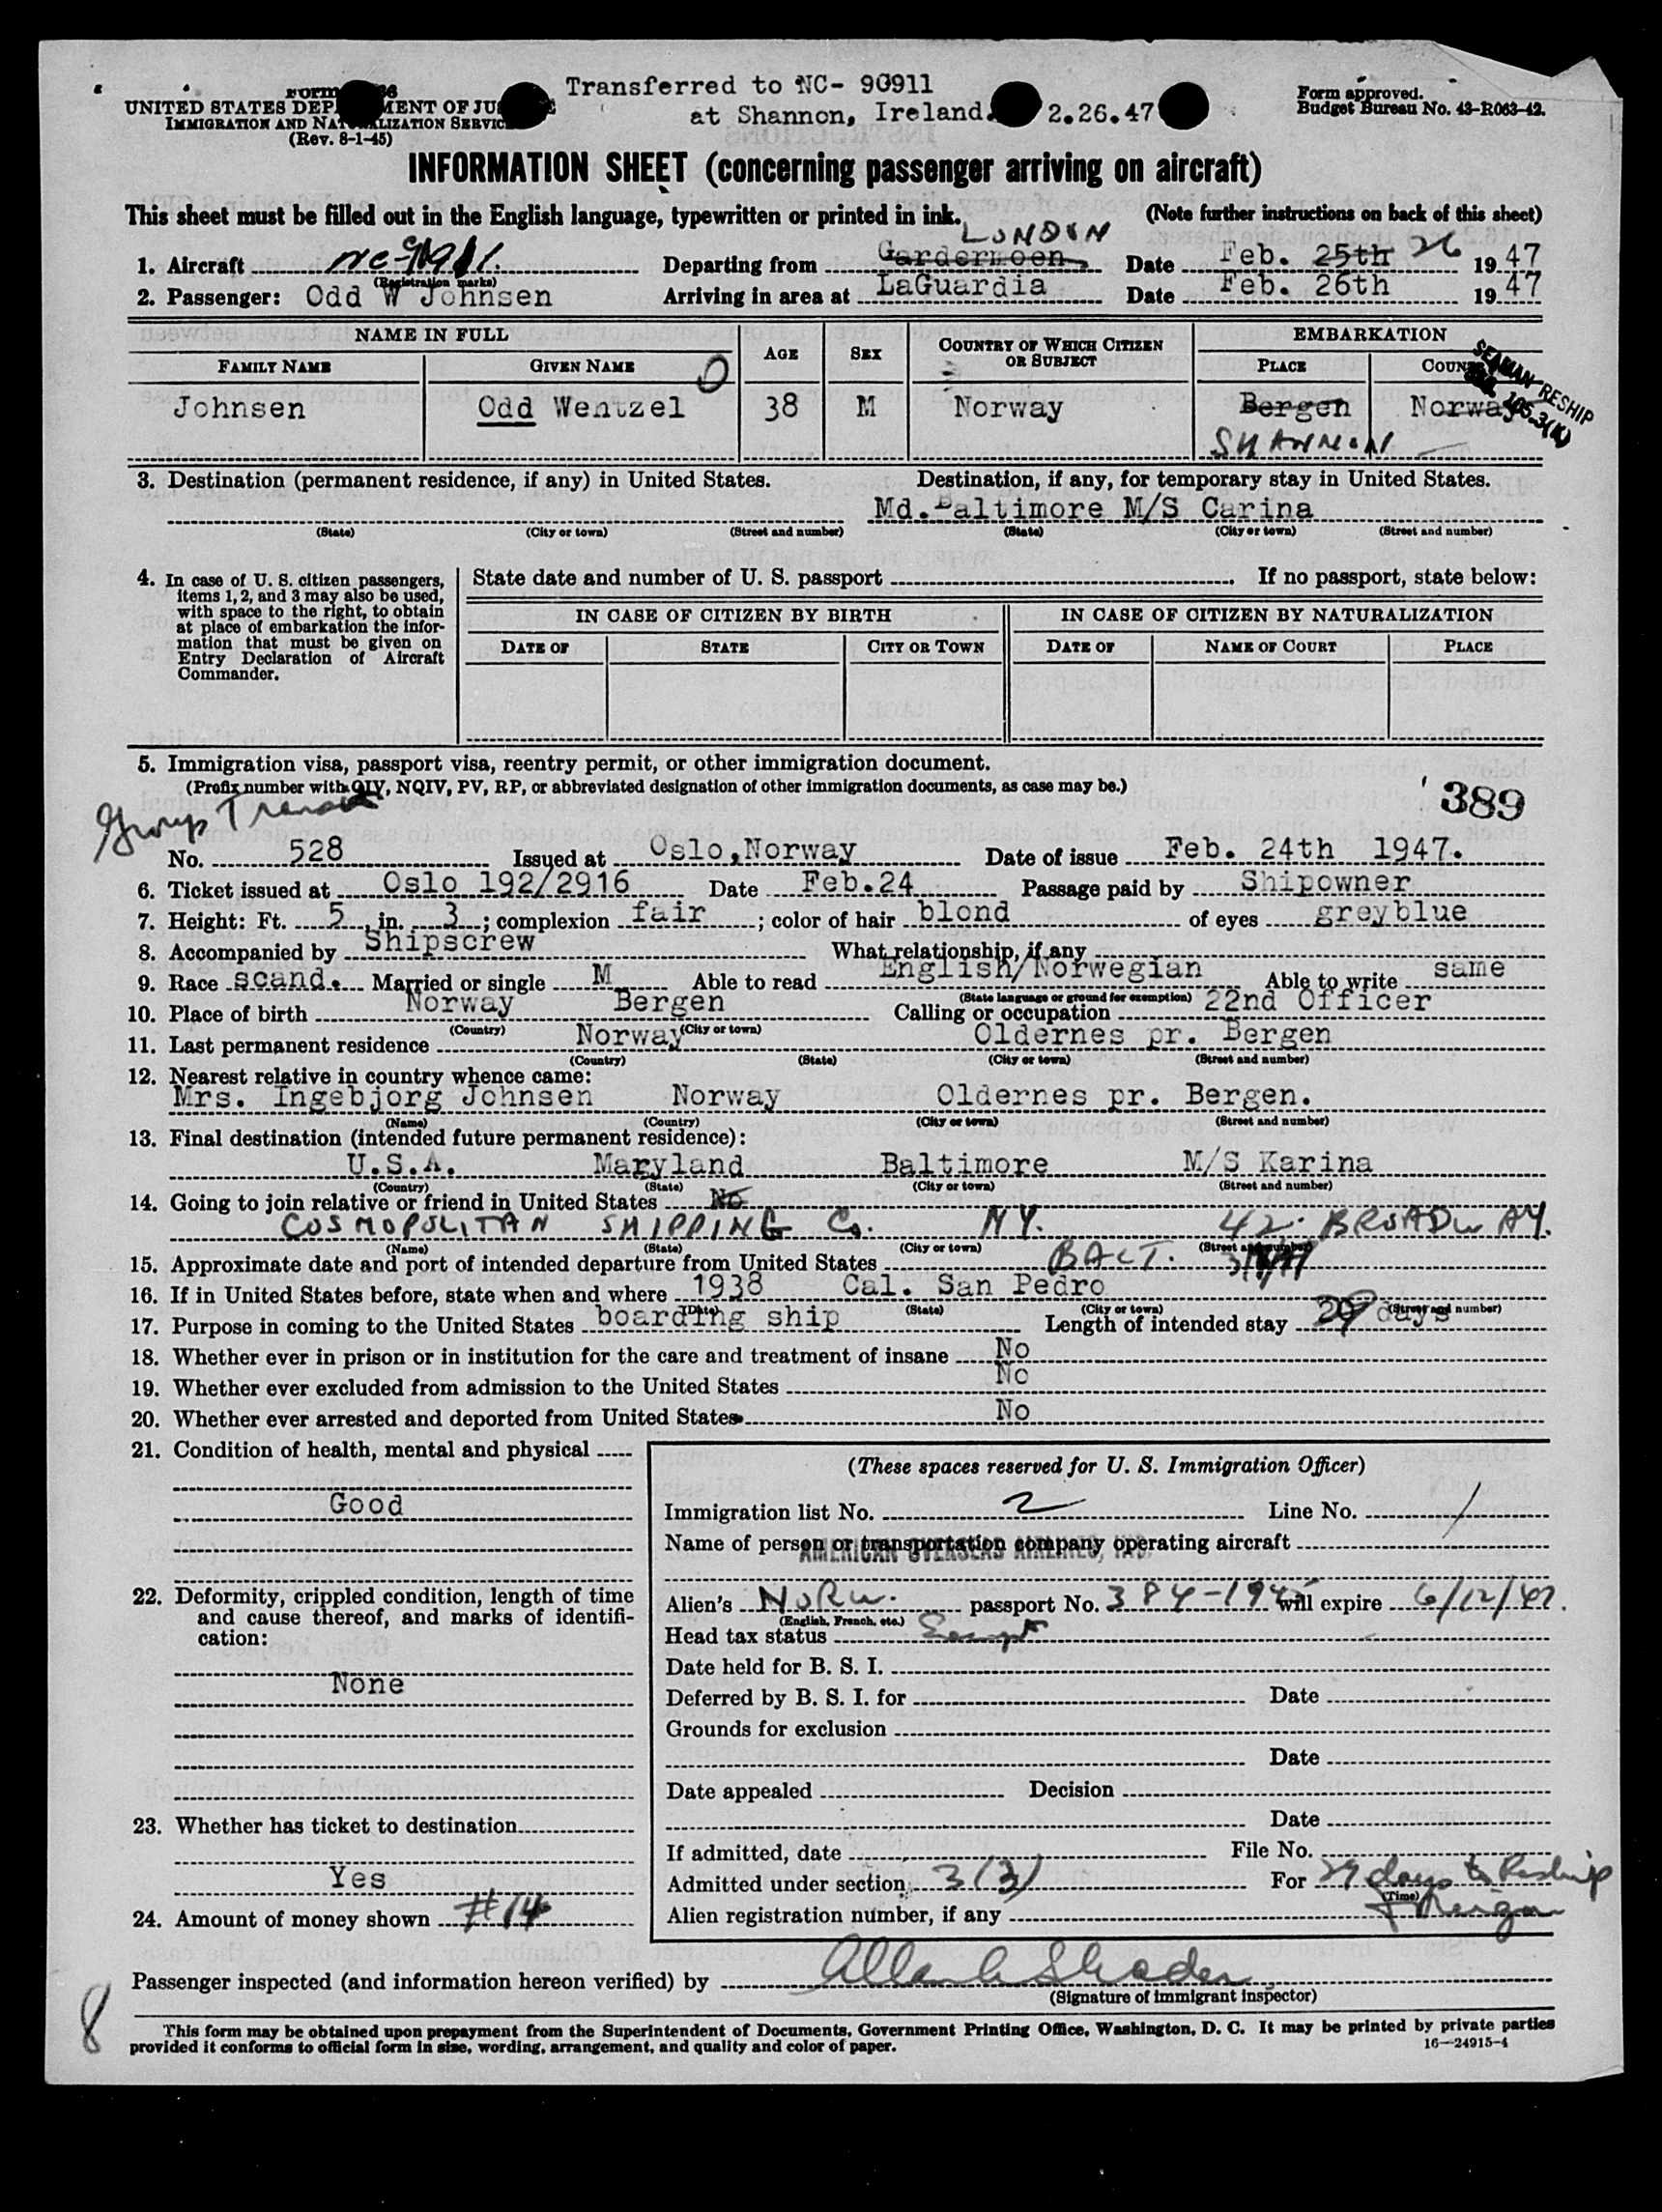 Transferred to NC- 90911
at Shannon, Ireland. 2.26.47
UNITED STATES DEP MENT OF JU
IMMIGRATION AND NAT LIZATION SERVIC
(Rev. 8-1-45)
Form approved.
Budget Bureau No. 43-R063-42.
INFORMATION SHEET (concerning passenger arriving on aircraft)
This sheet must be filled out in the English language, typewritten or printed in ink. (Note further instructions on back of this sheet)
LONDON
1. Aircraft Departing from Gardermoen Date Feb. 25th 26 1947
(Registration marks)
2. Passenger: Odd W Johnsen Arriving in area at LaGuardia Date Feb. 26th 1947
NAME IN FULL AGE SEX COUNTRY OF WHICH CITIZEN OR SUBJECT EMBARKATION
FAMILY NAME GIVEN NAME PLACE
SEAMAN RESHIP
105.3(K)
Johnsen Odd Wentzel 38 M Norway Bergen Norway
SHANNON
3. Destination (permanent residence, if any) in United States. Destination, if any, for temporary stay in United States.
Md. Baltimore M/S Carina
(State) (City or town) (Street and number) (State) (City or town) (Street and number)
4. In case of U. S. citizen passengers, items 1, 2, and 3 may also be used, with space to the right, to obtain at place of embarkation the information that must be given on Entry Declaration of Aircraft Commander.
State date and number of U. S. passport If no passport, state below:
IN CASE OF CITIZEN BY BIRTH IN CASE OF CITIZEN BY NATURALIZATION
DATE OF STATE CITY OR TOWN DATE OF NAME OF COURT PLACE
5. Immigration visa, passport visa, reentry permit, or other immigration document.
(Prefix number with QIV, NQIV, PV, RP, or abbreviated designation of other immigration documents, as case may be.)
389
Group
No. 528 Issued at Oslo, Norway Date of issue Feb. 24th 1947.
6. Ticket issued at Oslo 192/2916 Date Feb.24 Passage paid by Shipowner
7. Height: Ft. 5, in. 3; complexion fair; color of hair blond of eyes greyblue
8. Accompanied by Shipscrew What relationship, if any
9. Race scand. Married or single M Able to read English/Norwegian Able to write same
(State language or ground for exemption)
10. Place of birth Norway Bergen Calling or occupation 22nd Officer
(Country) (City or town)
11. Last permanent residence Norway Oldernes pr. Bergen
(Country) (State) (City or town) (Street and number)
12. Nearest relative in country whence came:
Mrs. Ingebjorg Johnsen Norway Oldernes pr. Bergen.
(Name) (Country) (City or town) (Street and number)
13. Final destination (intended future permanent residence):
U.S.A. Maryland Baltimore M/S Karina
(Country) (State) (City or town) (Street and number)
14. Going to join relative or friend in United States No
COSMOPOLITAN SHIPPING Co. NY. 42. BROADWAY.
(Name) (State) (City or town) (Street and number)
15. Approximate date and port of intended departure from United States BALT.
16. If in United States before, state when and where 1938 Cal. San Pedro
(Date) (State) (City or town) (Street and number)
17. Purpose in coming to the United States boarding ship Length of intended stay 29 days
18. Whether ever in prison or in institution for the care and treatment of insane No
19. Whether ever excluded from admission to the United States No
20. Whether ever arrested and deported from United States No
21. Condition of health, mental and physical
Good
22. Deformity, crippled condition, length of time and cause thereof, and marks of identification:
None
23. Whether has ticket to destination
Yes
24. Amount of money shown #14
(These spaces reserved for U. S. Immigration Officer)
Immigration list No. 2 Line No. 1
Name of person or transportation company operating aircraft
AMERICAN OVERSEAS AIRLINES, INC.
Alien's NORW. passport No. 384-194 will expire 6/12/47.
(English, French, etc.)
Head tax status Exempt
Date held for B. S. I.
Deferred by B. S. I. for Date
Grounds for exclusion
Date
Date appealed Decision
Date
If admitted, date File No.
Admitted under section 3(3) For 29 days to Reship
(Time)
Foreign
Alien registration number, if any
Passenger inspected (and information hereon verified) by Allan A Shader
(Signature of immigrant inspector)
8
This form may be obtained upon prepayment from the Superintendent of Documents, Government Printing Office, Washington, D. C. It may be printed by private parties
provided it conforms to official form in size, wording, arrangement, and quality and color of paper. 16—24915-4